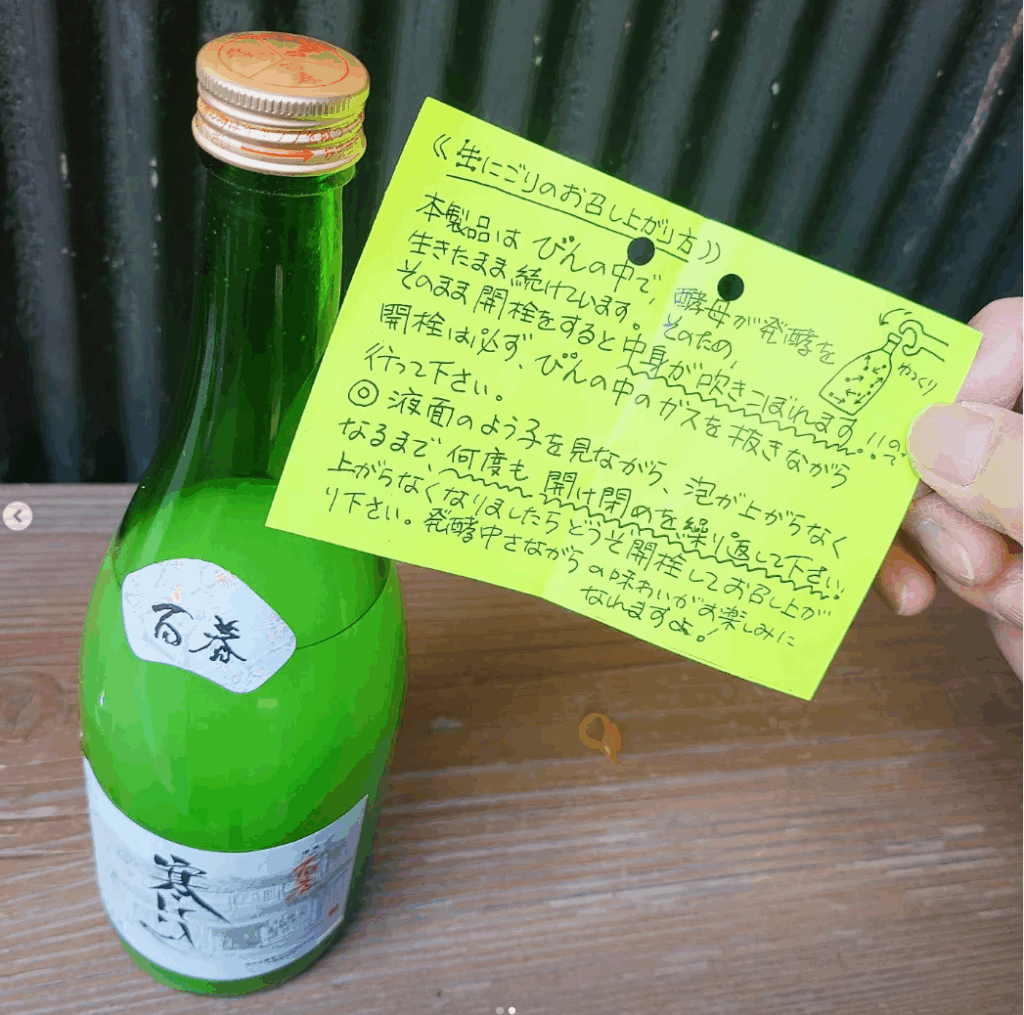 《生にごりのお召し上がり方》
本製品は びんの中で、酵母が発酵を
生きたまま 続けています。そのため、
そのまま 開栓をすると 中身が 吹きこぼれます!!ので
開栓は必ず、びんの中のガスを抜きながら
行って下さい。
◎ 液面のよう子を見ながら、泡が上がらなく
なるまで、何度も 開け閉めを繰り返して下さい。
上がらなくなりましたらどうぞ開栓してお召し上が
り下さい。発酵中さながらの味わいがお楽しみに
なれますよ!
ゆっくり
百春